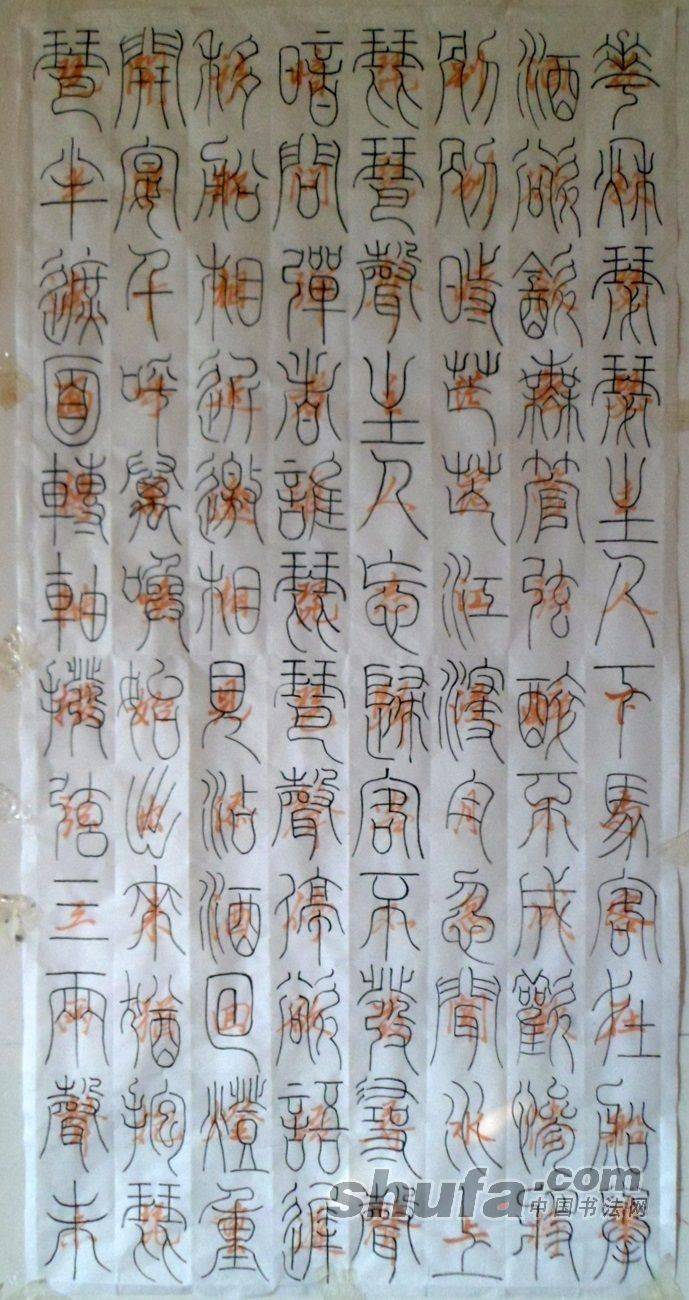 華秋瑟瑟主人下馬客在船舉
酒欲飲無管弦醉不成歡慘將
別別時茫茫江浸月忽聞水上
琵琶聲主人忘歸客不發尋聲
暗問彈者誰琵琶聲停欲語遲
移船相近邀相見添酒回燈重
開宴千呼萬喚始出來猶抱琵
琶半遮面轉軸撥弦三兩聲未
shufa.com
中国书法网